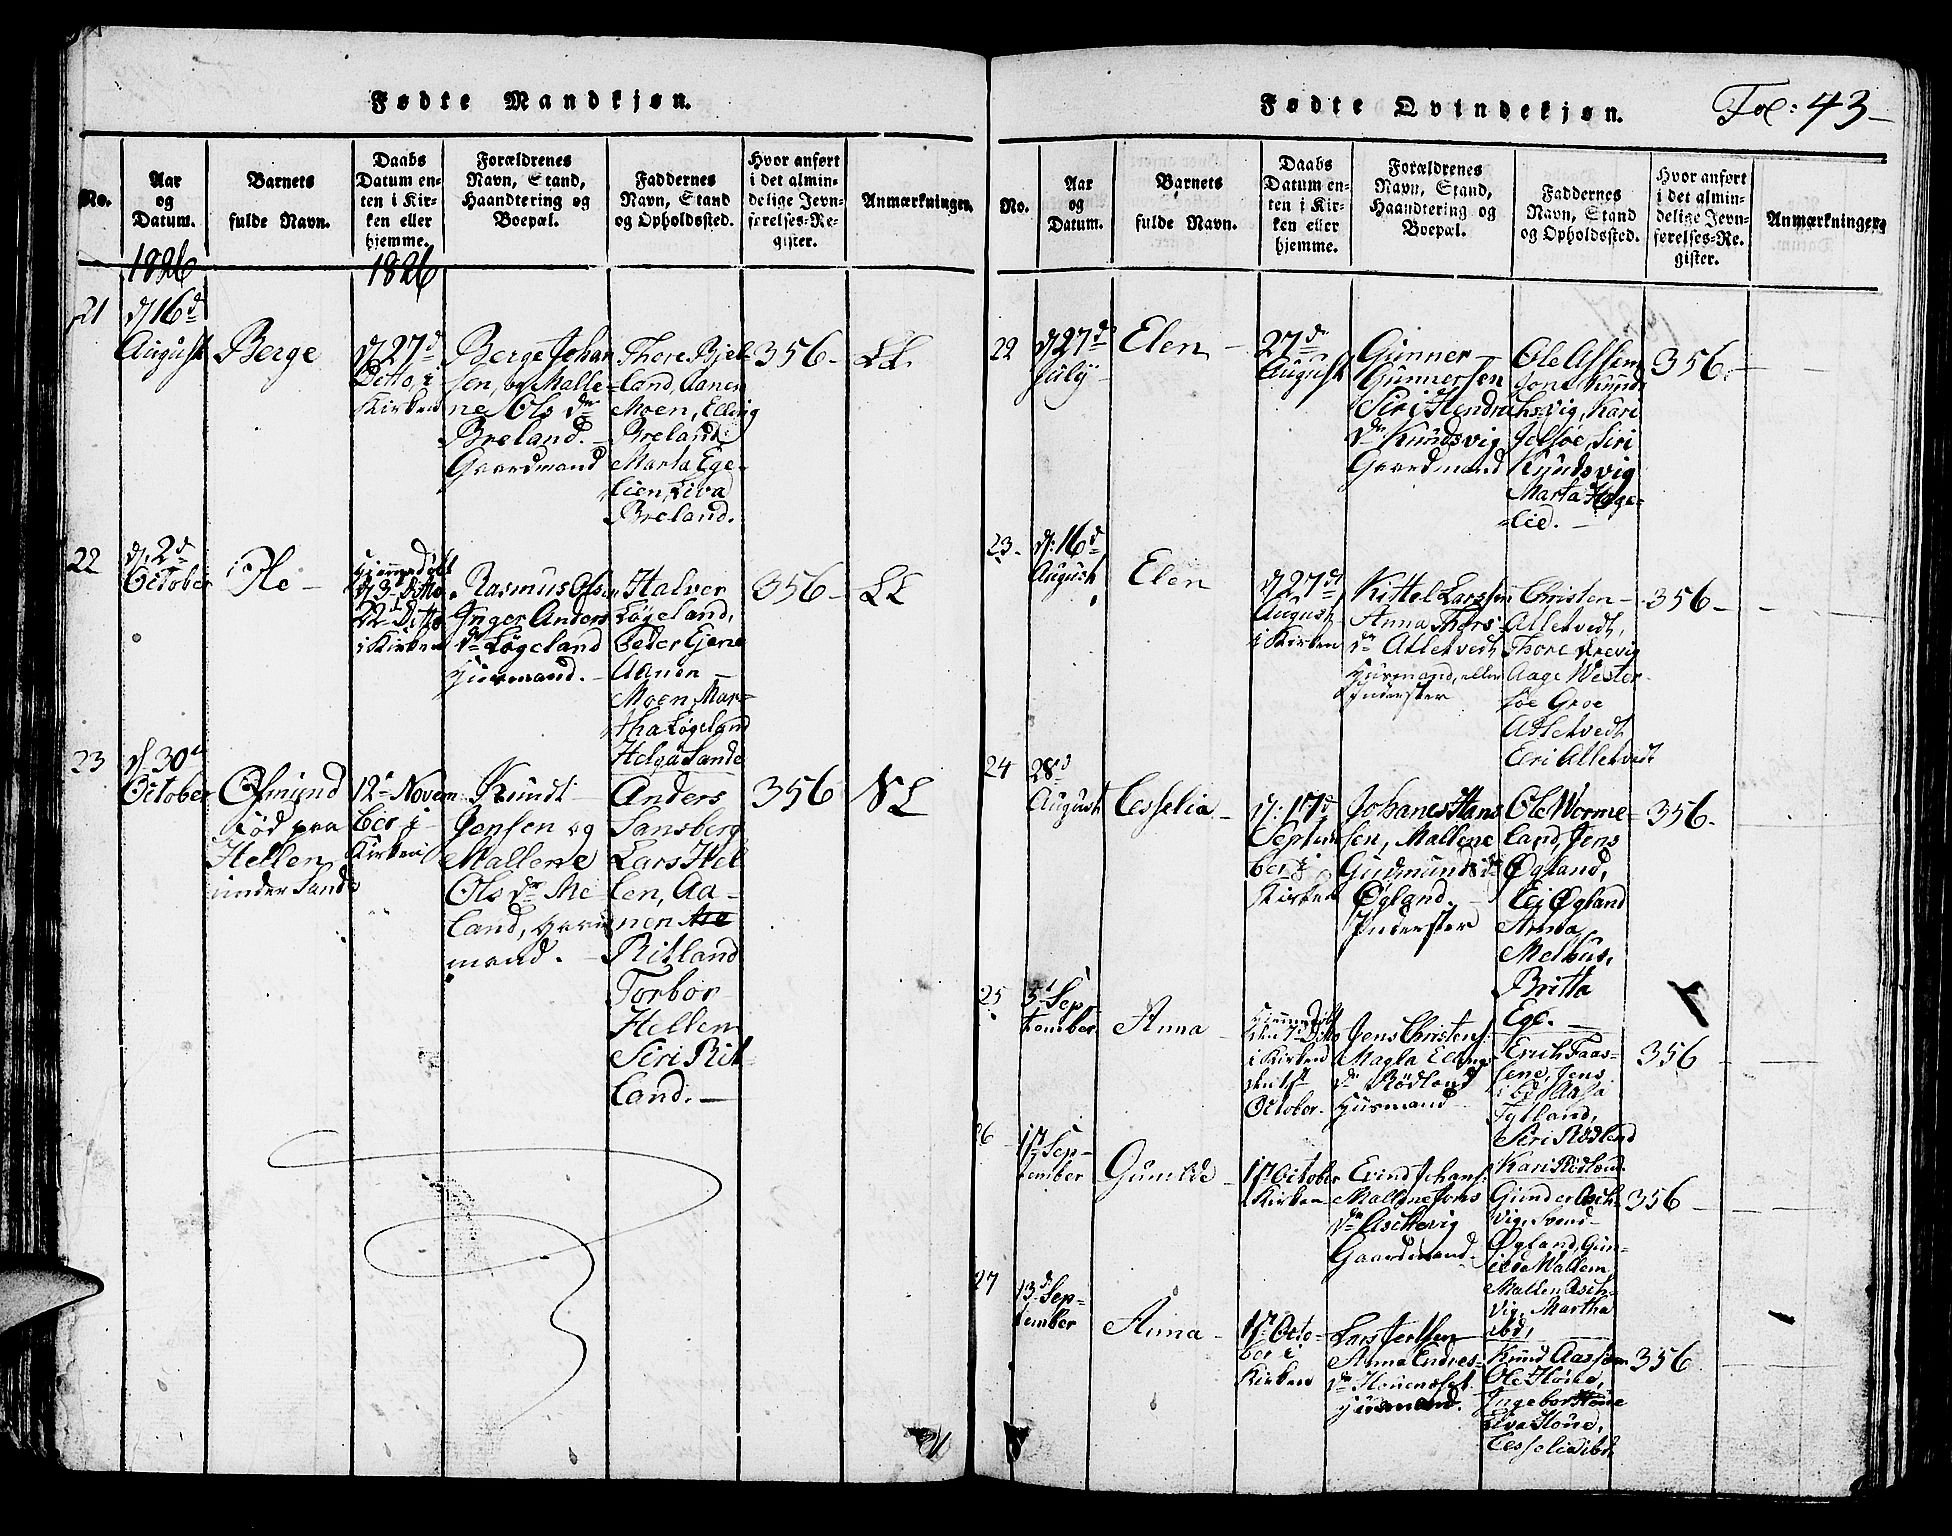 Fødte Mandkjøn.
No.
Aar
og
Datum.
Barnets
fulde Navn.
Daabs
Datum en-
ten i Kir-
ken eller
hjemme.
Forældrenes
Navn, Stand,
Haandtering og
Boepæl.
Faddernes
Navn, Stand
og Opholdssted.
Hvor anført
i det almin-
delige Jevn-
førelses-Re-
gister.
Anmærkninger.
1826
1826
21
d/16d
August
Berge
d/27d
Ditto, i
Kirken
Berge Johan
sen, og Malle-
ne Ols dr
Breland. -
Gaardmand
Thore Bjel
land, Aanen
Moen, Elling
Breland.
Marta Ege-
lien, Siva
Breland.
356-
LL.
22
d. 2d
October
Ole -
Hjemmedøbt
d/3 Ditto
22 Ditto
i Kirken
Rasmus Olsen
Inger Anders
dr Løgeland
Huusmand. -
Halver
Løgeland,
Peder Ejene
Aanen -
Moen, Mar-
tha Løgeland
Helga Sande
356-
LL
23
d. 30d
October
Osmund
fød paa
Hellen
under Sande
12d Novem
ber i
Kirken
Knudt
Jensen og
Mallene
Ols dr Me
land, Huus
mand. -
Anders
Sansberg
Lars Hel
len, Aa-
nen
Ritland
Torbor
Hellen
Siri Rit
land. -
356
NL
Fødte Qvindekjøn.
Fol: 43-
No.
Aar
og
Datum.
Barnets
fulde Navn.
Daabs
Datum en-
ten i Kir-
ken eller
hjemme.
Forældrenes
Navn, Stand,
Haandtering og
Boepæl.
Faddernes
Navn, Stand
og Opholdssted.
Hvor anført
i det almin-
delige Jevn-
førelses-Re-
gister.
Anmærkninger.
22
d/27d
July
Elen -
27d
August
Gunner -
Gunnersen
Siri Hendrichs
dr Knudsvig
Gaardmand
Ole Assem
Knud
vig, Kari
Jelsøe, Siri
Knudsvig
Marta Hage-
lie. -
356.
23.
d. 16d
August
Elen
d. 27d
August
i Kirken
Kittel Larssen
Anna Thors
dr Alletvedt
Huusmand, eller
Inderster
Christen
Alletvedt,
Thore
Aage Wester
søe Groe
Alletvedt
Eri Alletvedt
356-
24
28d
August
Cesselia -
d. 17d
Septem
ber i
Kirken
Johanes Hans
sen, Mallene
Gudmunds dr
Øgland. -
Inderster
Ole Worme-
land, Jens
Øgland,
Eij Øgland
Anna
Melhus,
Britta
Ege. -
356.
25
5d Sep-
tember
Anna -
Hjemmedøbt
den 7 Ditto
i Kirken
den 1st
October.
Jens Christens.
Magla Ellings
dr Rødland
Huusmand
Erich Faas-
sene, Jens
ibd Aasa
Tytland,
Siri Rødland
Kari Ridland
356
26
17 Sep-
tember
Gunlid -
1st October
i Kirken
Evind Johans.
Mallene Jons
dr Aschevig
Gaardmand.
Gunder Asch-
vig, Svend
Øgland, Gun-
ilda Mallem
Mallen Asch-
vig, Martha
ibd,
356
27
13d Sep-
tember
Anna -
1st Octo-
ber i
Kirken
Lars Jertsen
Anna Endres-
dr
Huusmand.
Knud Aassem
Ole
Ingebor Houe
Siva Houe,
Cesselia ibd.
356